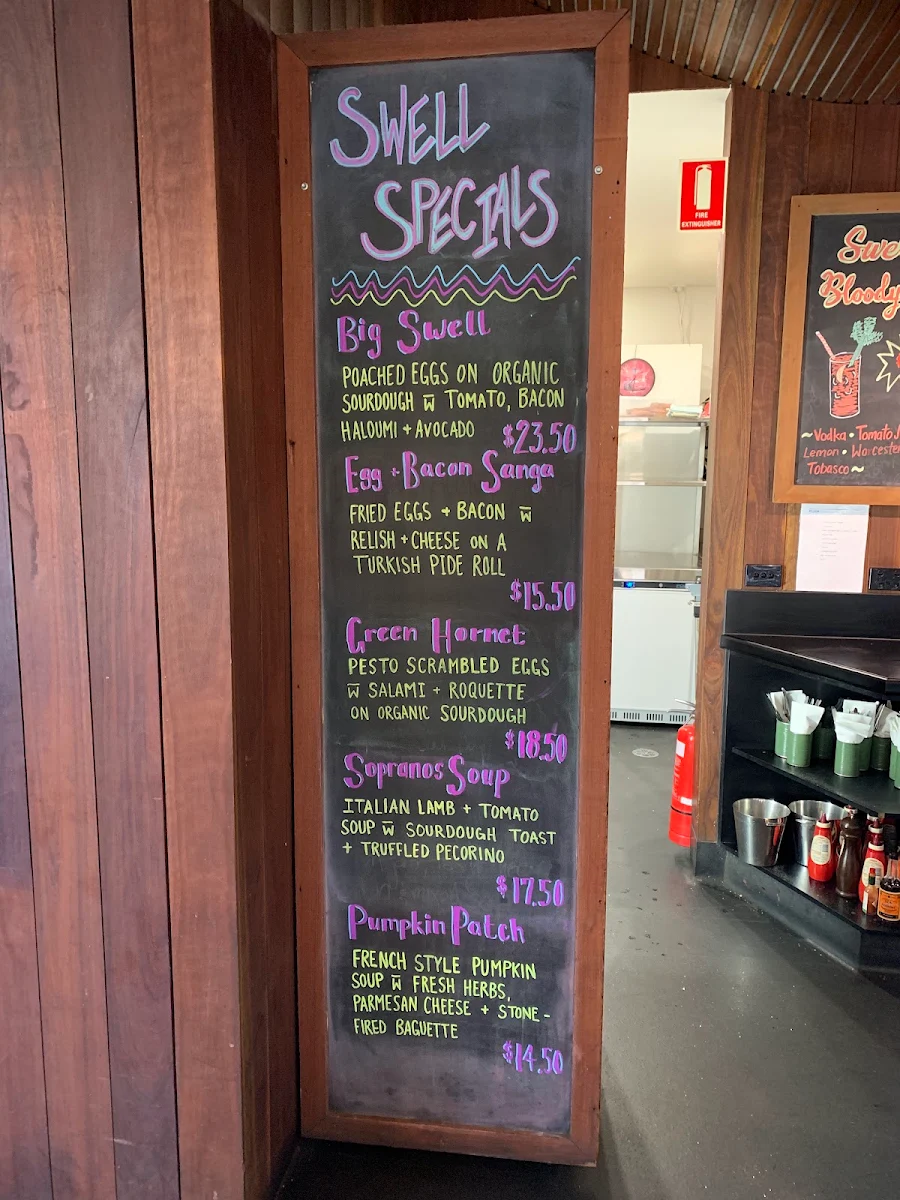 SWELL
SPECIALS
Big Swell
POACHED EGGS ON ORGANIC
SOURDOUGH w̅ TOMATO, BACON
HALOUMI + AVOCADO $23.50
Egg + Bacon Sanga
FRIED EGGS + BACON w̅
RELISH + CHEESE ON A
TURKISH PIDE ROLL
$15.50
Green Hornet
PESTO SCRAMBLED EGGS
w̅ SALAMI + ROQUETTE
ON ORGANIC SOURDOUGH
$18.50
Sopranos Soup
ITALIAN LAMB + TOMATO
SOUP w̅ SOURDOUGH TOAST
+ TRUFFLED PECORINO
$17.50
Pumpkin Patch
FRENCH STYLE PUMPKIN
SOUP w̅ FRESH HERBS,
PARMESAN CHEESE + STONE-
FIRED BAGUETTE
$14.50
FIRE
EXTINGUISHER
Swe
Bloody
~Vodka • Tomato J
Lemon • Worcester
Tobasco~